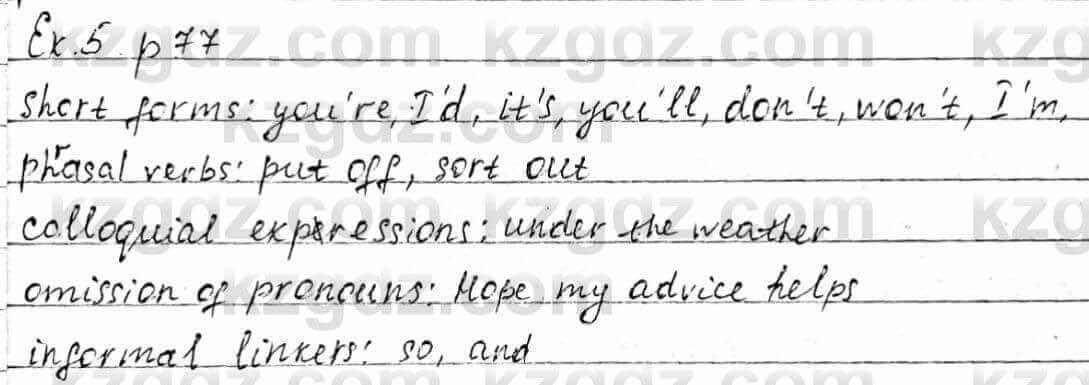 Ex. 5 p 77
short forms: you're, I'd, it's, you'll, don't, won't, I'm,
phrasal verbs: put off, sort out
colloquial expressions: under the weather
omission of pronouns: Hope my advice helps
informal linkers: so, and